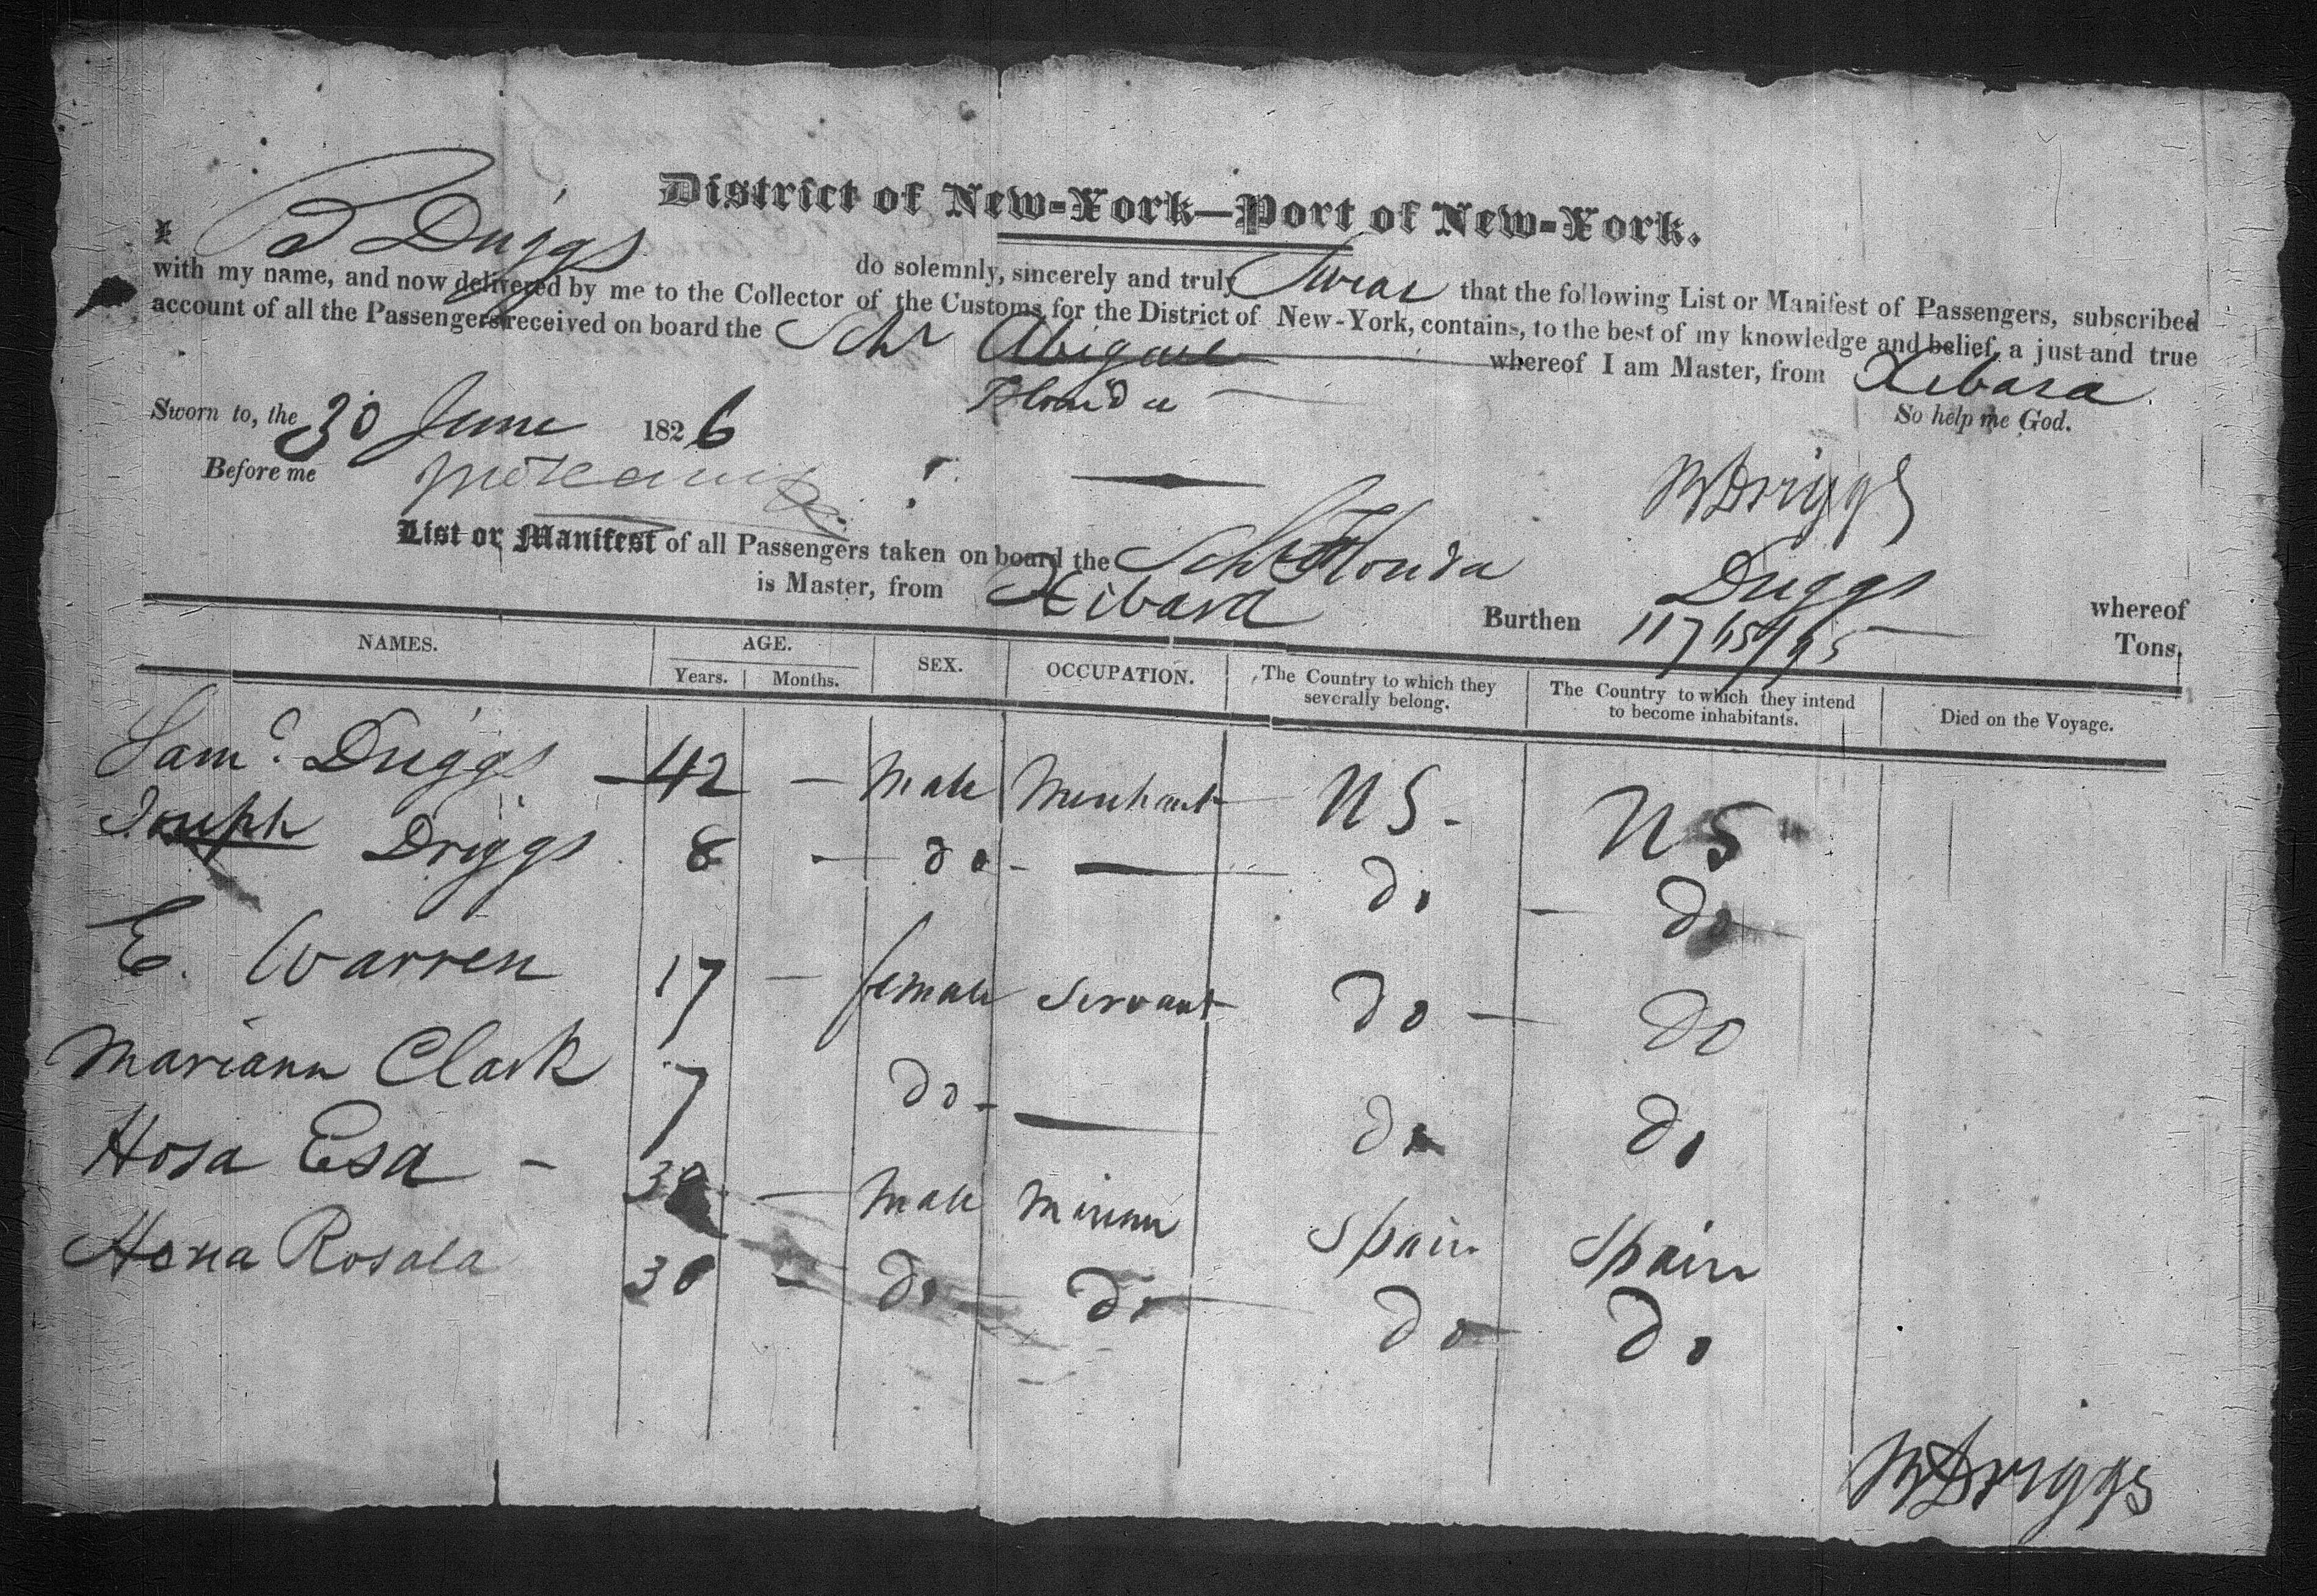 District of New-York—Port of New-York.
I, Driggs do solemnly, sincerely and truly Swear that the following List or Manifest of Passengers, subscribed
with my name, and now delivered by me to the Collector of the Customs for the District of New-York, contains, to the best of my knowledge and belief, a just and true
account of all the Passengers received on board the Schr Abigail whereof I am Master, from Xibara
Florida
So help me God.
Sworn to, the 30 June 1826
Before me
W Driggs
List or Manifest of all Passengers taken on board the Schr Florida Driggs whereof
is Master, from Xibara Burthen 117 65/95 Tons.
NAMES. AGE. SEX. OCCUPATION. The Country to which they severally belong. The Country to which they intend to become inhabitants. Died on the Voyage.
Years. Months.
Saml. Driggs 42 — Male Merchant U S - U S
Joseph Driggs 8 — do - — do — do
E. Warren 17 — female Servant do — do
Mariann Clark 7 do - — do do
Hosa Esa - 38 — Male Spain Spain
Rosala 30 — do do do do
W Driggs